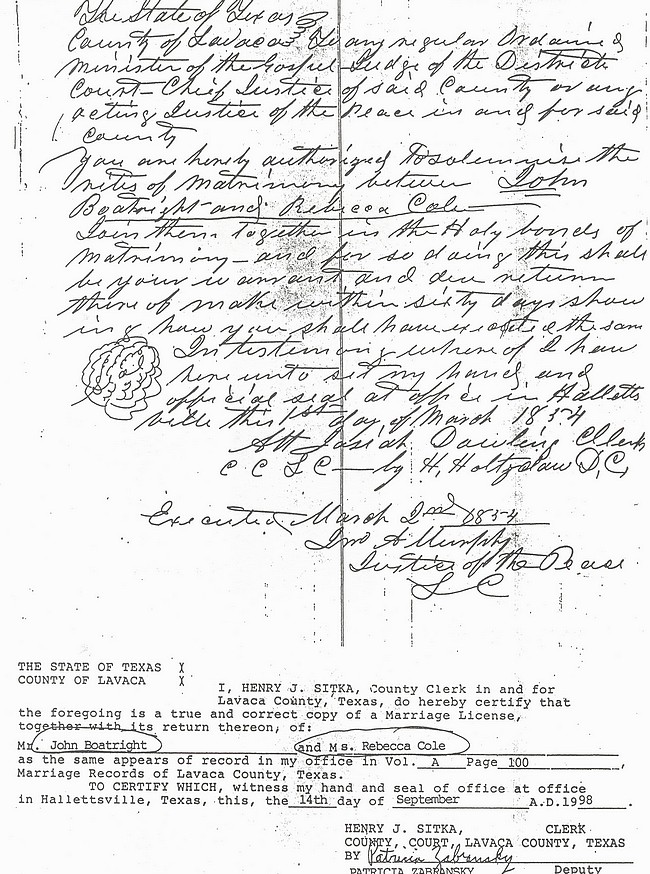 The State of Texas
County of Lavaca To any regular Ordained
Minister of the Gospel Judge of the District
Court - Chief Justice of said County or any
acting Justice of the Peace in and for said
County
You are hereby authorized To solemnise the
rites of Matrimony between John
Boatright and Rebecca Cole
Join them together in the Holy bonds of
Matrimony - and for so doing this shall
be your warrant and due return
there of make within sixty days show
ing how you shall have executed the same
In testimony where of I have
here unto set my hand and
official seal at office in Halletts
ville this 1st day of March 1854
Att Josiah Dowling Clerk
C C L C - by H. Holtzclaw D.C.
Executed March 2nd 1854
Jno A Murphy
Justice of the Peace
L C
THE STATE OF TEXAS X
COUNTY OF LAVACA X
I, HENRY J. SITKA, County Clerk in and for
Lavaca County, Texas, do hereby certify that
the foregoing is a true and correct copy of a Marriage License,
together with its return thereon, of:
Mr. John Boatright and Ms. Rebecca Cole
as the same appears of record in my office in Vol. A Page 100,
Marriage Records of Lavaca County, Texas.
TO CERTIFY WHICH, witness my hand and seal of office at office
in Hallettsville, Texas, this, the 14th day of September A.D.1998.
HENRY J. SITKA, CLERK
COUNTY, COURT, LAVACA COUNTY, TEXAS
BY Patricia Zabransky
PATRICIA ZABRANSKY Deputy